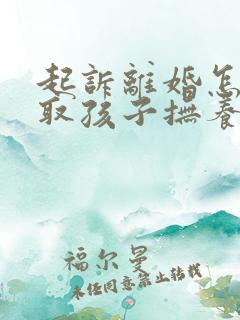 起訴離婚怎
取孩子撫養
福尔曼
未任同意禁止转载